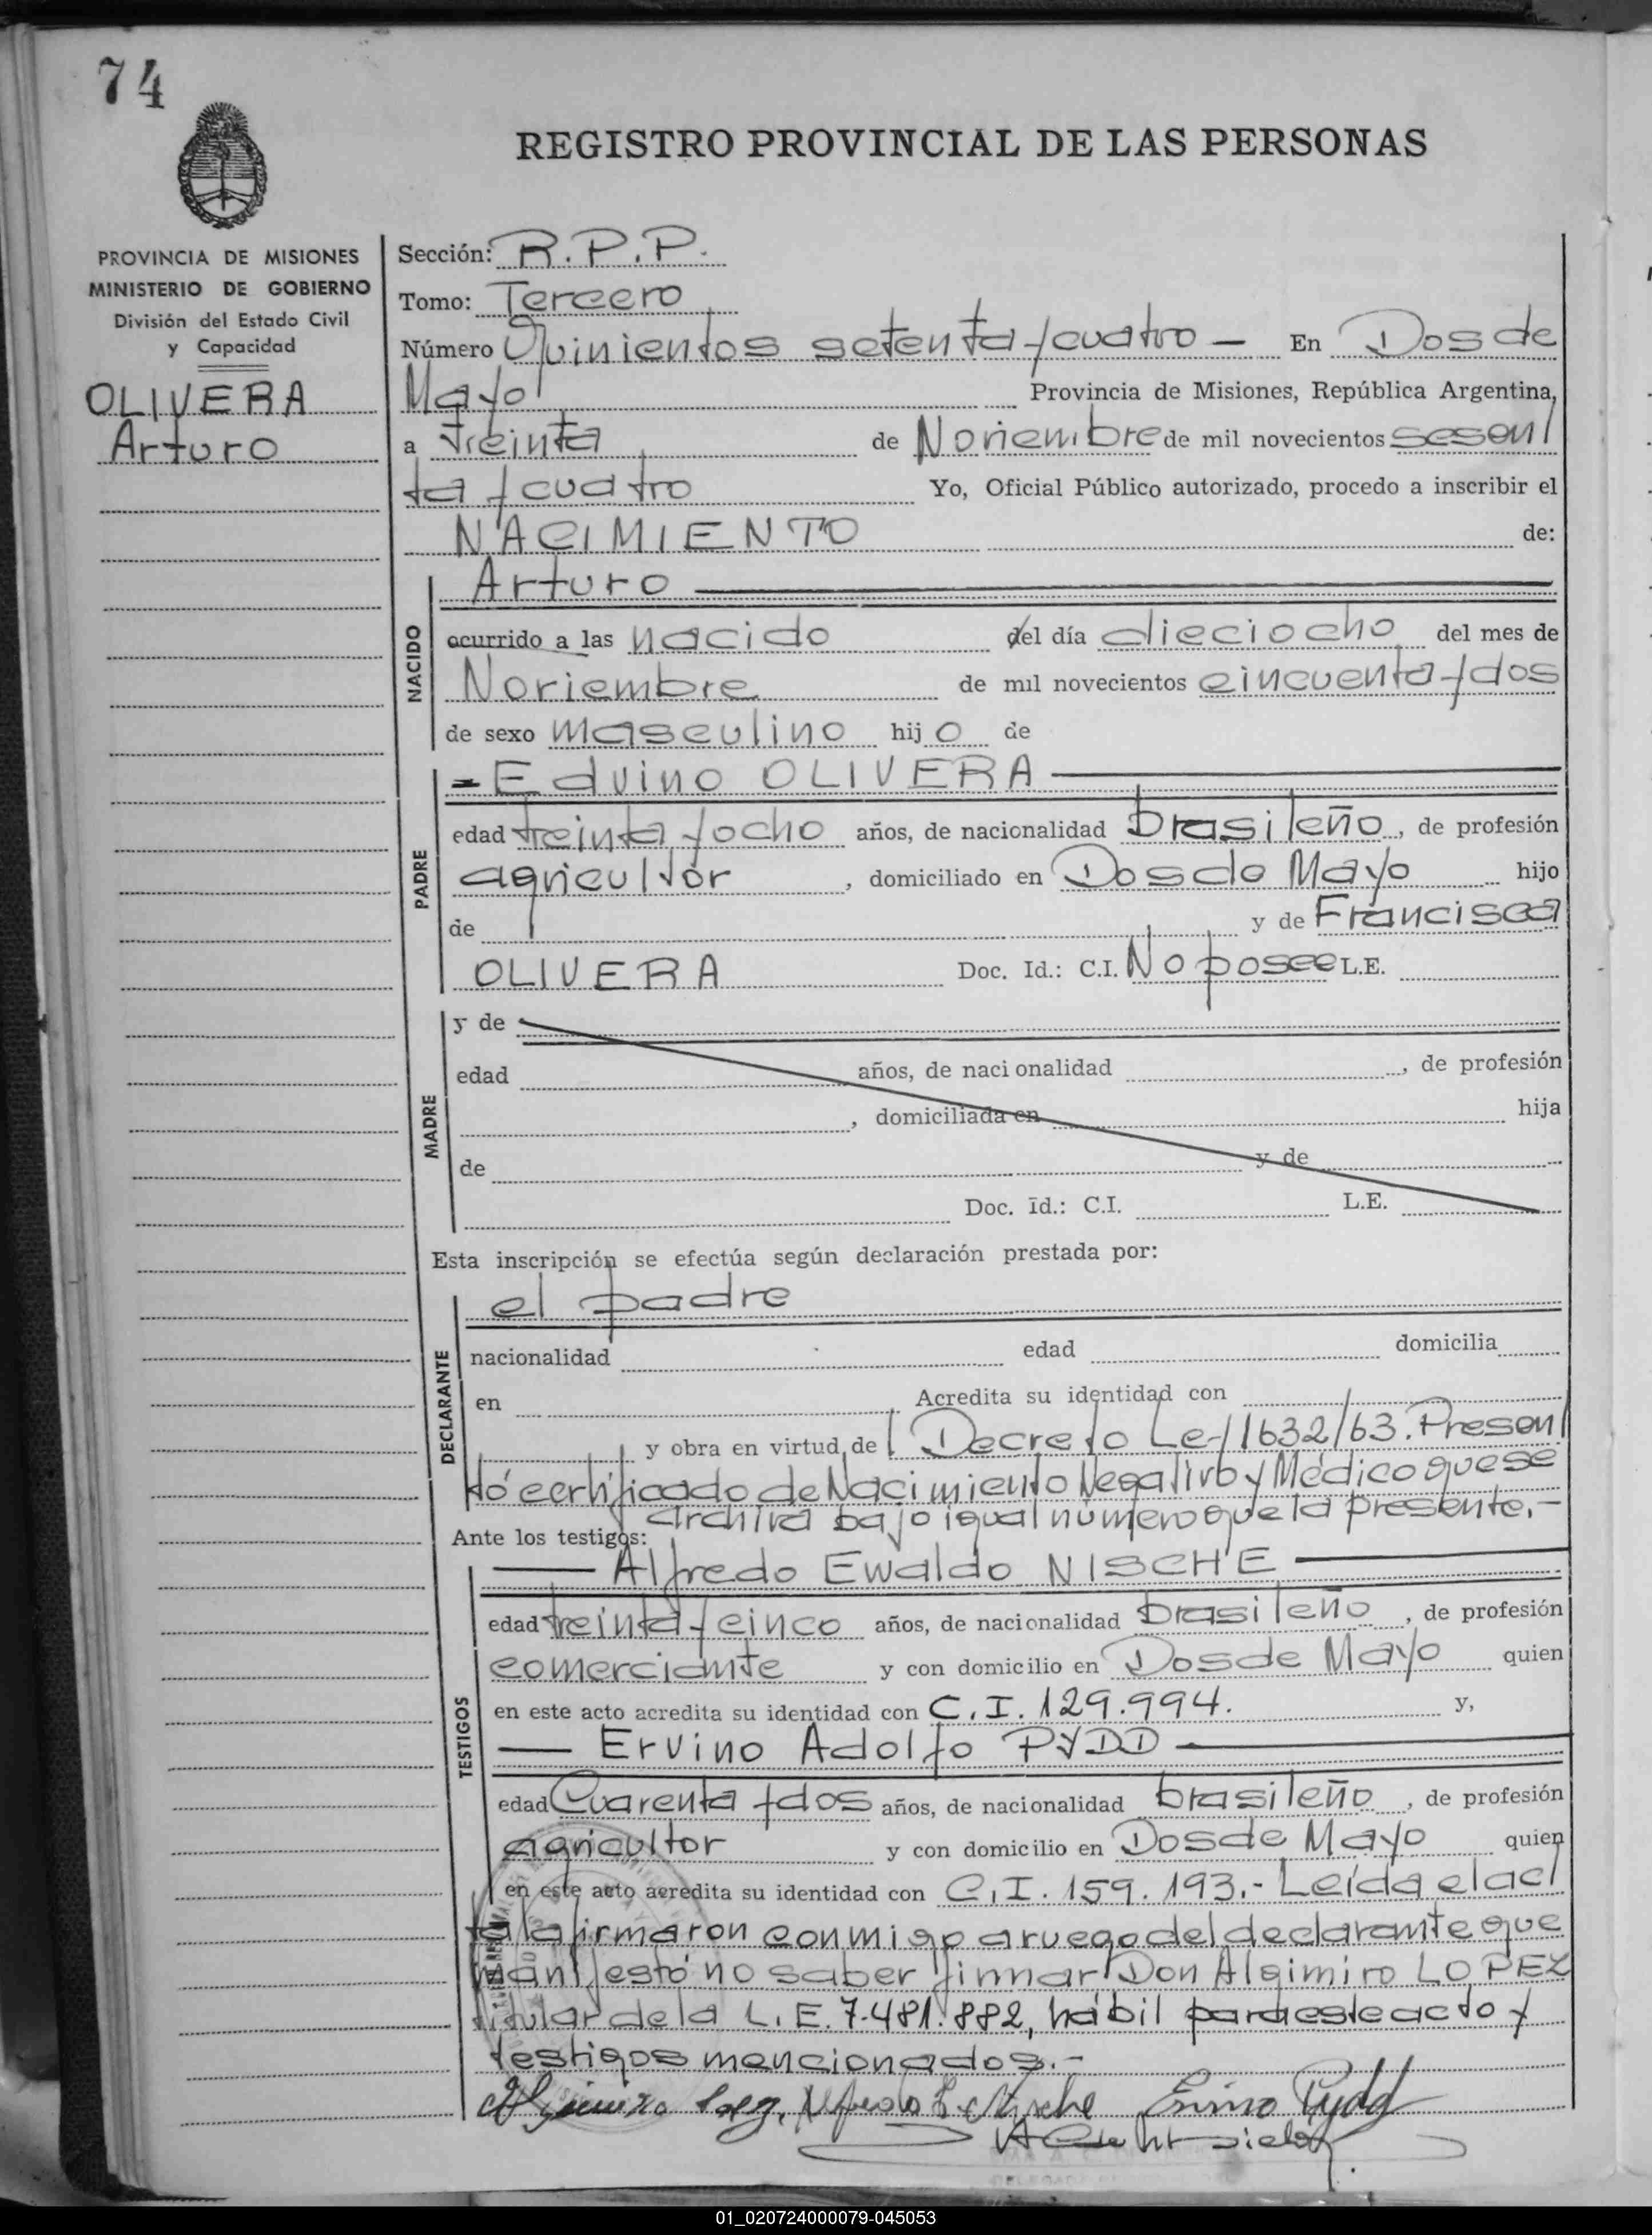 74
REGISTRO PROVINCIAL DE LAS PERSONAS
PROVINCIA DE MISIONES
MINISTERIO DE GOBIERNO
División del Estado Civil
y Capacidad
OLIVERA
Arturo
Sección: R.P.P.
Tomo: Tercero
Número Quinientos setenta y cuatro — En Dos de
Mayo Provincia de Misiones, República Argentina,
a treinta de Noviembre de mil novecientos sesen/
ta y cuatro Yo, Oficial Público autorizado, procedo a inscribir el
NACIMIENTO de:
NACIDO
Arturo
ocurrido a las nacido del día dieciocho del mes de
Noviembre de mil novecientos cincuenta y dos
de sexo masculino hijo de
PADRE
- Edvino OLIVERA
edad treinta y ocho años, de nacionalidad brasileño, de profesión
agricultor, domiciliado en Dos de Mayo hijo
de y de Francisca
OLIVERA Doc. Id.: C.I. No posee L.E.
MADRE
y de
edad años, de nacionalidad , de profesión
, domiciliada en hija
de y de
Doc. Id.: C.I. L.E.
Esta inscripción se efectúa según declaración prestada por:
DECLARANTE
el padre
nacionalidad edad domicilia
en Acredita su identidad con
y obra en virtud de l Decreto Ley 1632/63. Presen/
tó certificado de Nacimiento Negativo y Médico que se
archiva bajo igual número que la presente.-
Ante los testigos:
TESTIGOS
— Alfredo Ewaldo NISCHE —
edad treinta y cinco años, de nacionalidad brasileño, de profesión
comerciante y con domicilio en Dos de Mayo quien
en este acto acredita su identidad con C.I. 129.994. y,
— Ervino Adolfo PYDD —
edad Cuarenta y dos años, de nacionalidad brasileño, de profesión
agricultor y con domicilio en Dos de Mayo quien
en este acto acredita su identidad con C.I. 159.193.- Leída el ac/
ta la firmaron conmigo a ruego del declarante que
manifestó no saber firmar Don Algimiro LOPEZ
titular de la L.E. 7.481.882, hábil para este acto y
testigos mencionados.-
Algimiro Lopez, Alfredo E. Nische Ervino Pydd
01_020724000079-045053